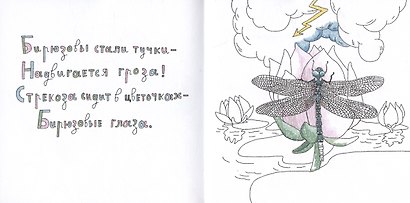 Бирюзовы стали тучки-
Надвигается гроза!
Стрекоза сидит в цветочках-
Бирюзовые глаза.